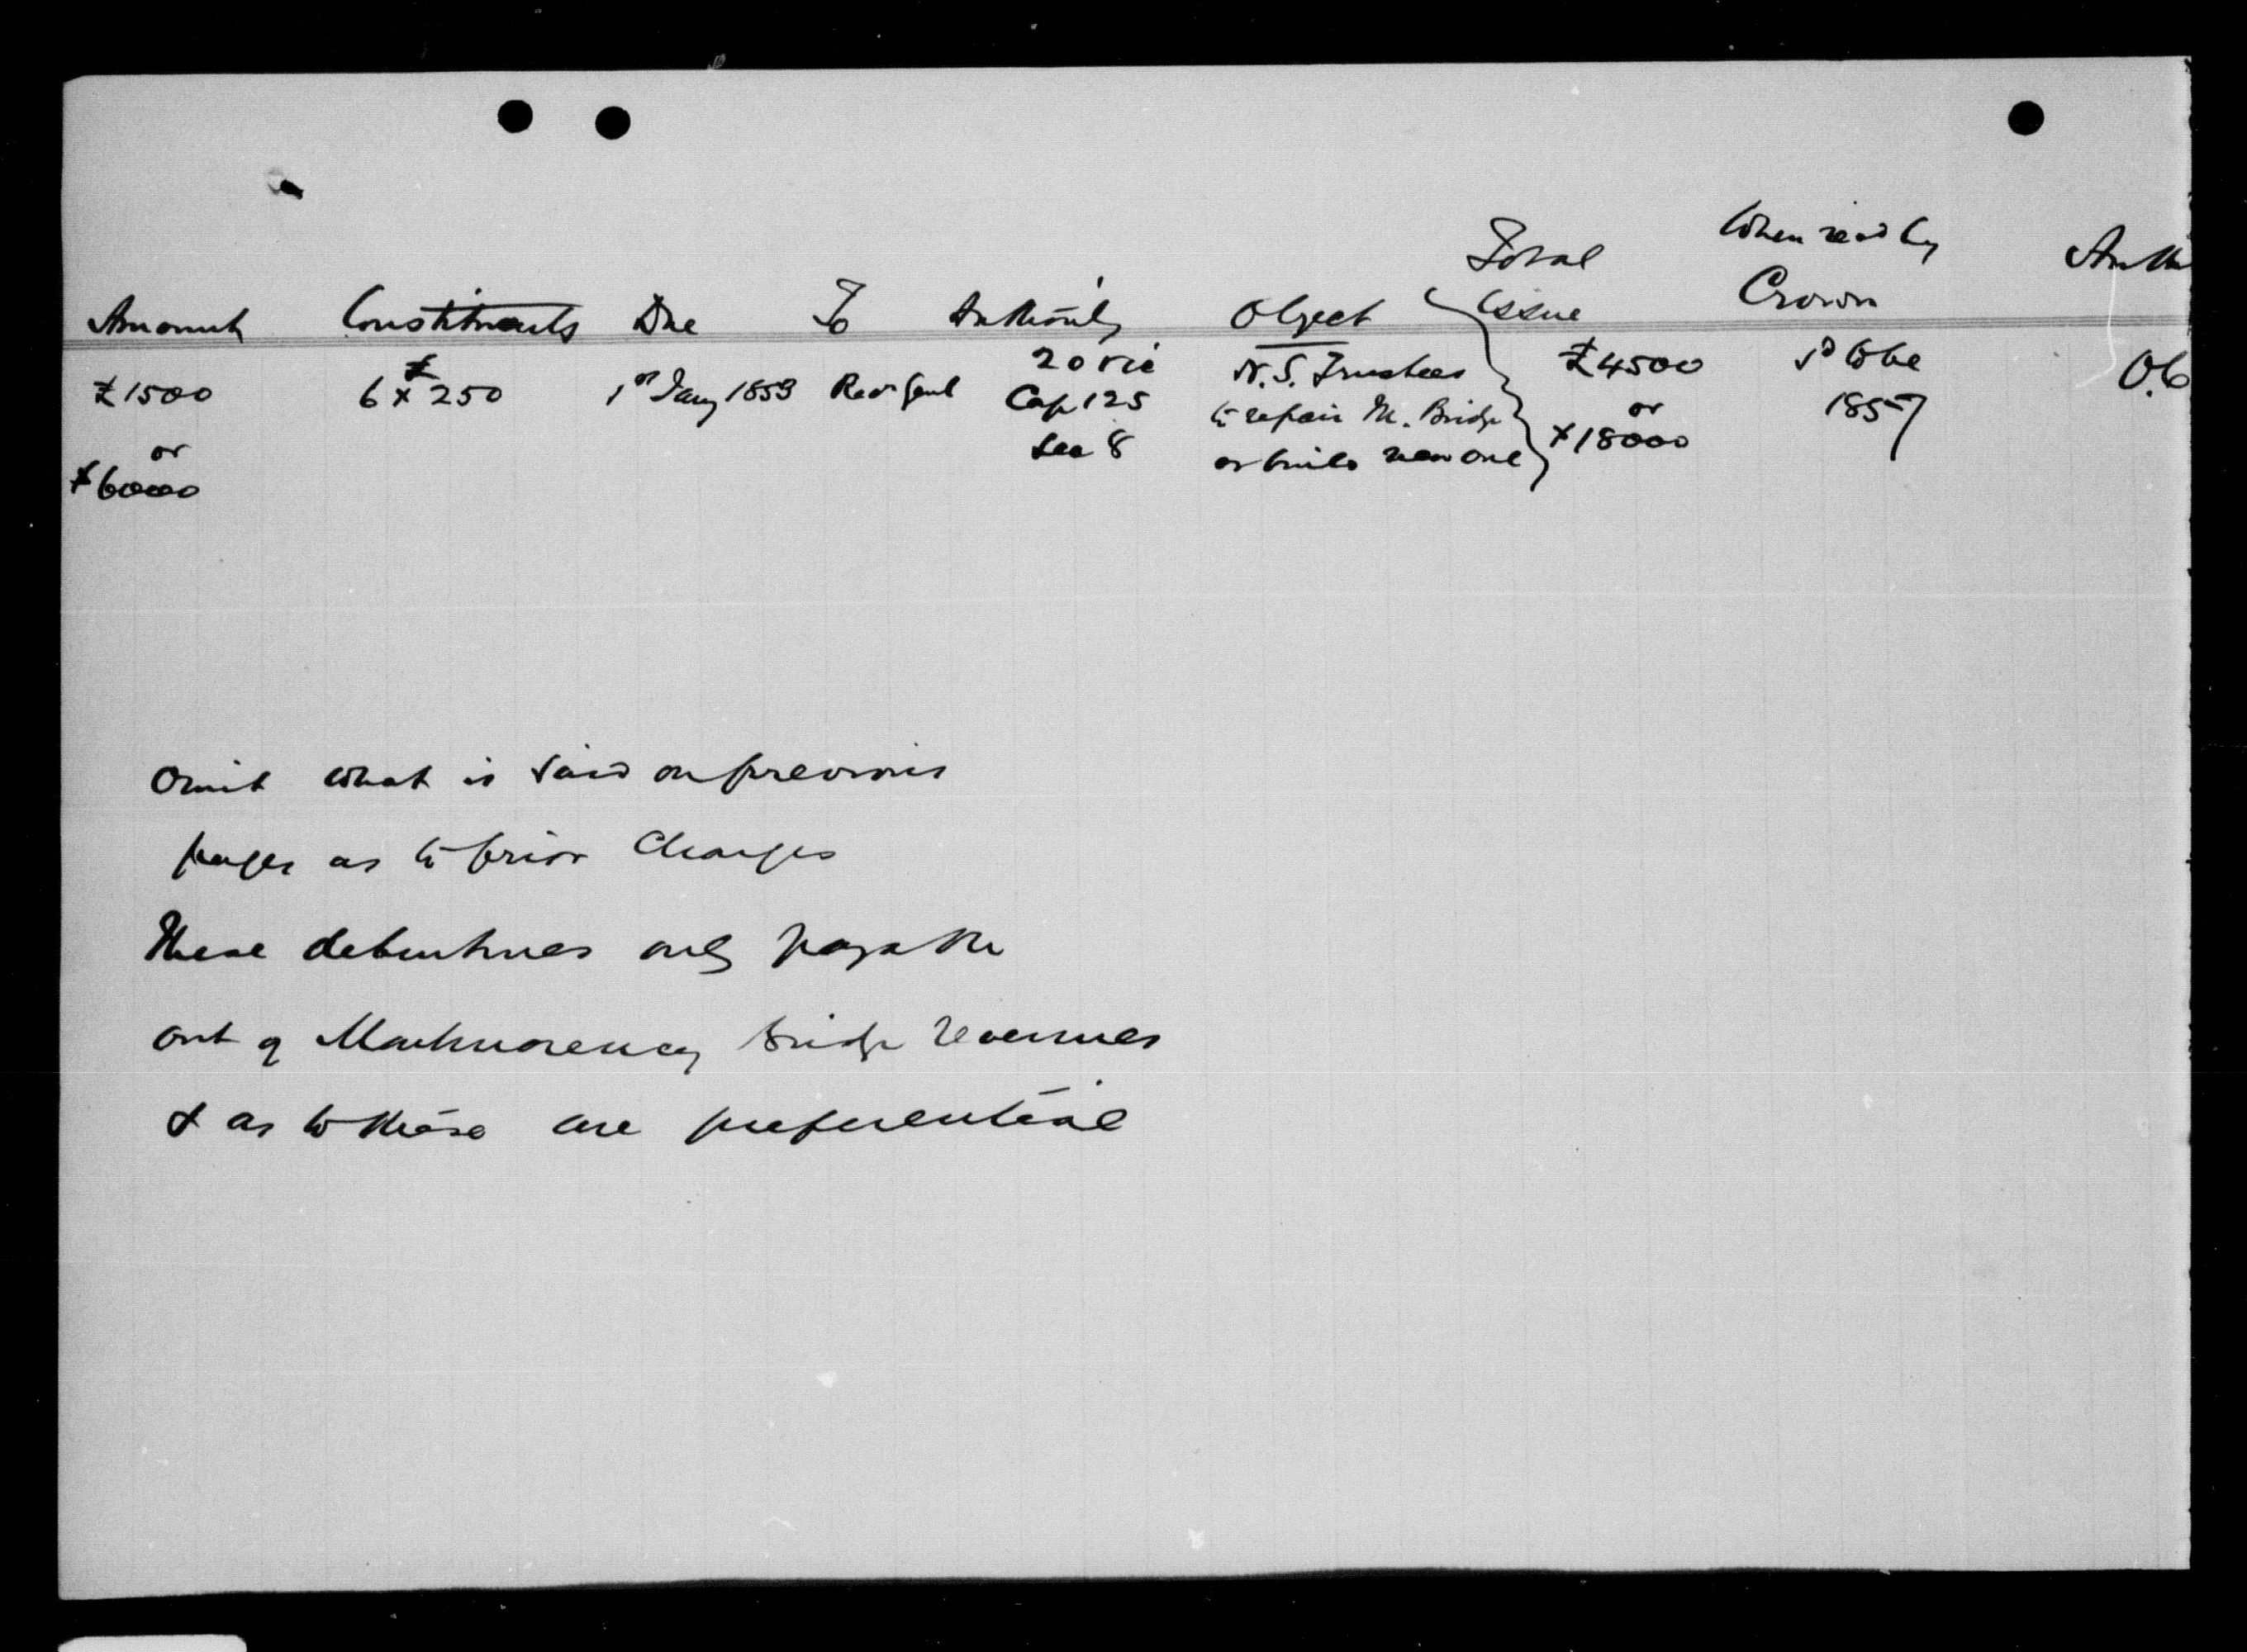 Amount Constituents Due To Authority Object Total Issue When recd by Crown Auth
£1500 6 x £250 1st Jany 1853 Recr Genl 20 Vic N.S. Trustees £4500
or Cap 125 to repair M. Bridge or 1857
$6000 Sec 8 or build new one $18000
Omit what is said on previous
pages as to prior charges
These debentures only payable
out of Montmorency Bridge revenues
& as to these are preferential